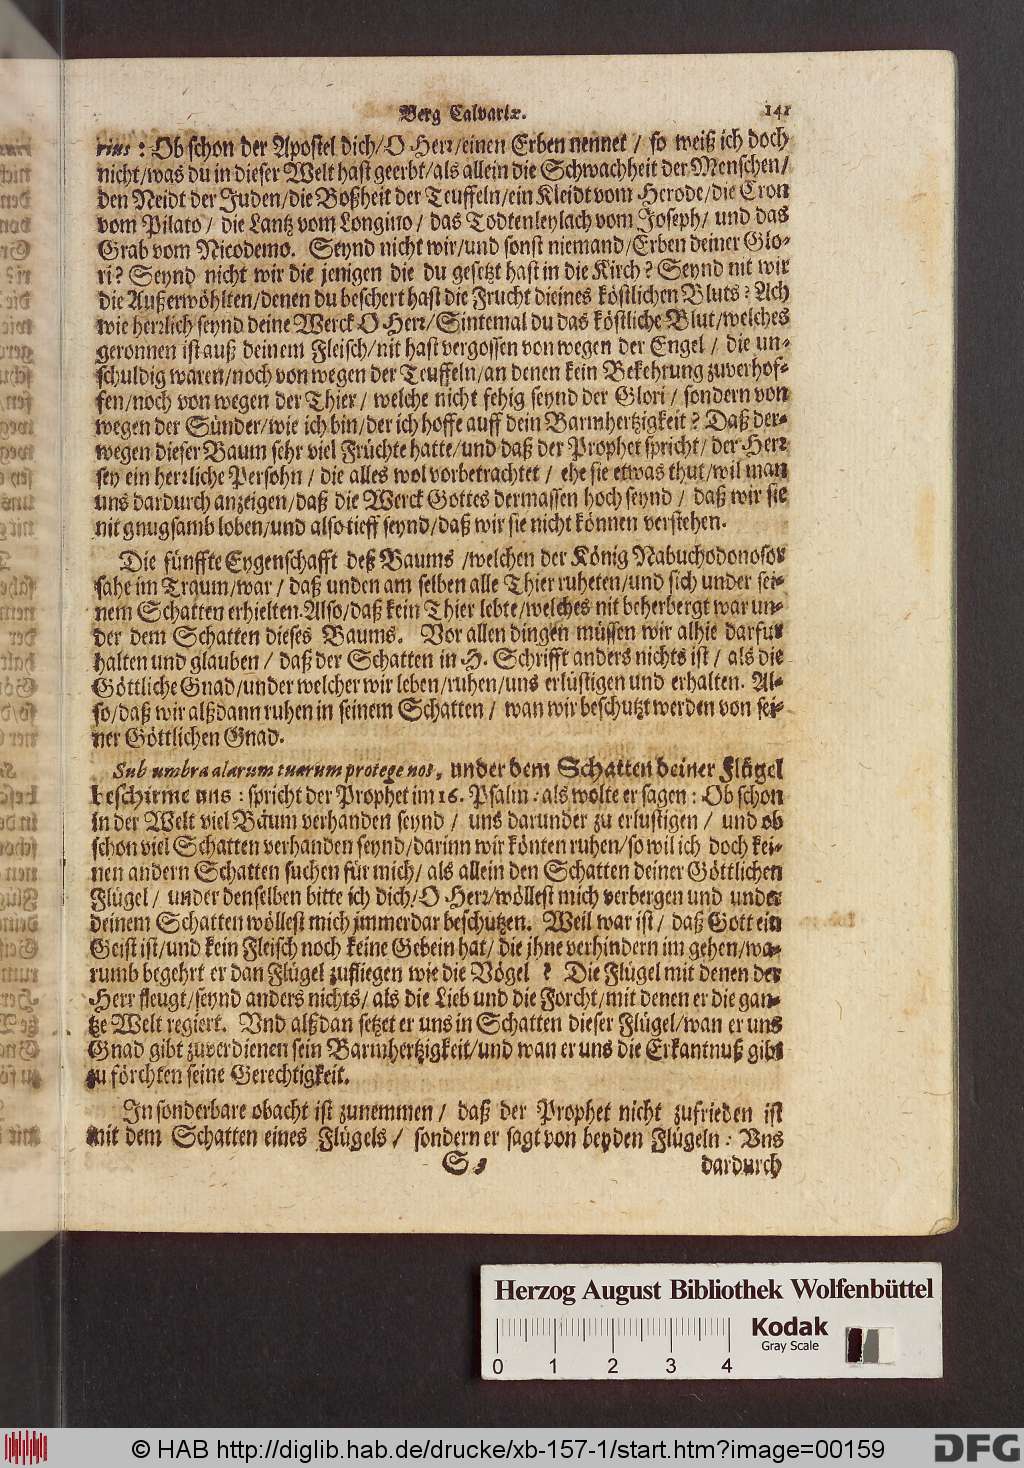 Berg Calvariæ. 141
rius: Ob schon der Apostel dich/O Herr/einen Erben nennet / so weiß ich doch
nicht/was du in dieser Welt hast geerbt/als allein die Schwachheit der Menschen/
den Neidt der Juden/die Boßheit der Teuffeln/ein Kleidt vom Herode/die Cron
vom Pilato / die Lantz vom Longino / das Todtenleylach vom Joseph/ und das
Grab vom Nicodemo. Seynd nicht wir/und sonst niemand/Erben deiner Glo-
ri? Seynd nicht wir die jenigen die du gesetzt hast in die Kirch? Seynd nit wir
die Außerwöhlten/denen du beschert hast die Frucht dieines köstlichen Bluts? Ach
wie herrlich seynd deine Werck O Herr/Sintemal du das köstliche Blut/welches
geronnen ist auß deinem Fleisch/nit hast vergossen von wegen der Engel / die un-
schuldig waren/noch von wegen der Teuffeln/an denen kein Bekehrung zuverhof-
fen/noch von wegen der Thier / welche nicht fehig seynd der Glori / sondern von
wegen der Sünder/wie ich bin/der ich hoffe auff dein Barmhertzigkeit? Daß der-
wegen dieser Baum sehr viel Früchte hatte/und daß der Prophet spricht/ der Herr
sey ein herrliche Persohn / die alles wol vorbetrachtet / ehe sie etwas thut/wil man
uns dardurch anzeigen/daß die Werck Gottes dermassen hoch seynd / daß wir sie
nit gnugsamb loben/und also tieff seynd/daß wir sie nicht können verstehen.
Die fünffte Eygenschafft deß Baums /welchen der König Nabuchodonosor
sahe im Traum/war / daß unden am selben alle Thier ruheten/und sich under sei-
nem Schatten erhielten. Also/daß kein Thier lebte/welches nit beherbergt war un-
der dem Schatten dieses Baums. Vor allen dingen müssen wir alhie darfur
halten und glauben / daß der Schatten in H. Schrifft anders nichts ist / als die
Göttliche Gnad/under welcher wir leben/ruhen/uns erlüstigen und erhalten. Al-
so/daß wir alßdann ruhen in seinem Schatten / wan wir beschutzt werden von sei-
ner Göttlichen Gnad.
Sub umbra alarum tuarum protege nos, under dem Schatten deiner Flügel
beschirme uns: spricht der Prophet im 16. Psalm: als wolte er sagen: Ob schon
in der Welt viel Bäum verhanden seynd / uns darunder zu erlustigen / und ob
schon viel Schatten verhanden seynd/darinn wir könten ruhen/so wil ich doch kei-
nen andern Schatten suchen für mich/ als allein den Schatten deiner Göttlichen
Flügel / under denselben bitte ich dich/O Herr/wöllest mich verbergen und under
deinem Schatten wöllest mich jmmerdar beschutzen. Weil war ist / daß Gott ein
Geist ist/und kein Fleisch noch keine Gebein hat/ die jhne verhindern im gehen/wa-
rumb begehrt er dan Flügel zufliegen wie die Vögel ? Die Flügel mit denen der
Herr fleugt/seynd anders nichts/ als die Lieb und die Forcht/mit denen er die gan-
tze Welt regiert. Vnd alßdan setzet er uns in Schatten dieser Flügel/wan er uns
Gnad gibt zuverdienen sein Barmhertzigkeit/und wan er uns die Erkantnuß gibt
zu förchten seine Gerechtigkeit.
In sonderbare obacht ist zunemmen / daß der Prophet nicht zufrieden ist
mit dem Schatten eines Flügels / sondern er sagt von beyden Flügeln: Vns
S 3 dardurch
Herzog August Bibliothek Wolfenbüttel
Kodak
Gray Scale
0 1 2 3 4
© HAB http://diglib.hab.de/drucke/xb-157-1/start.htm?image=00159
DFG